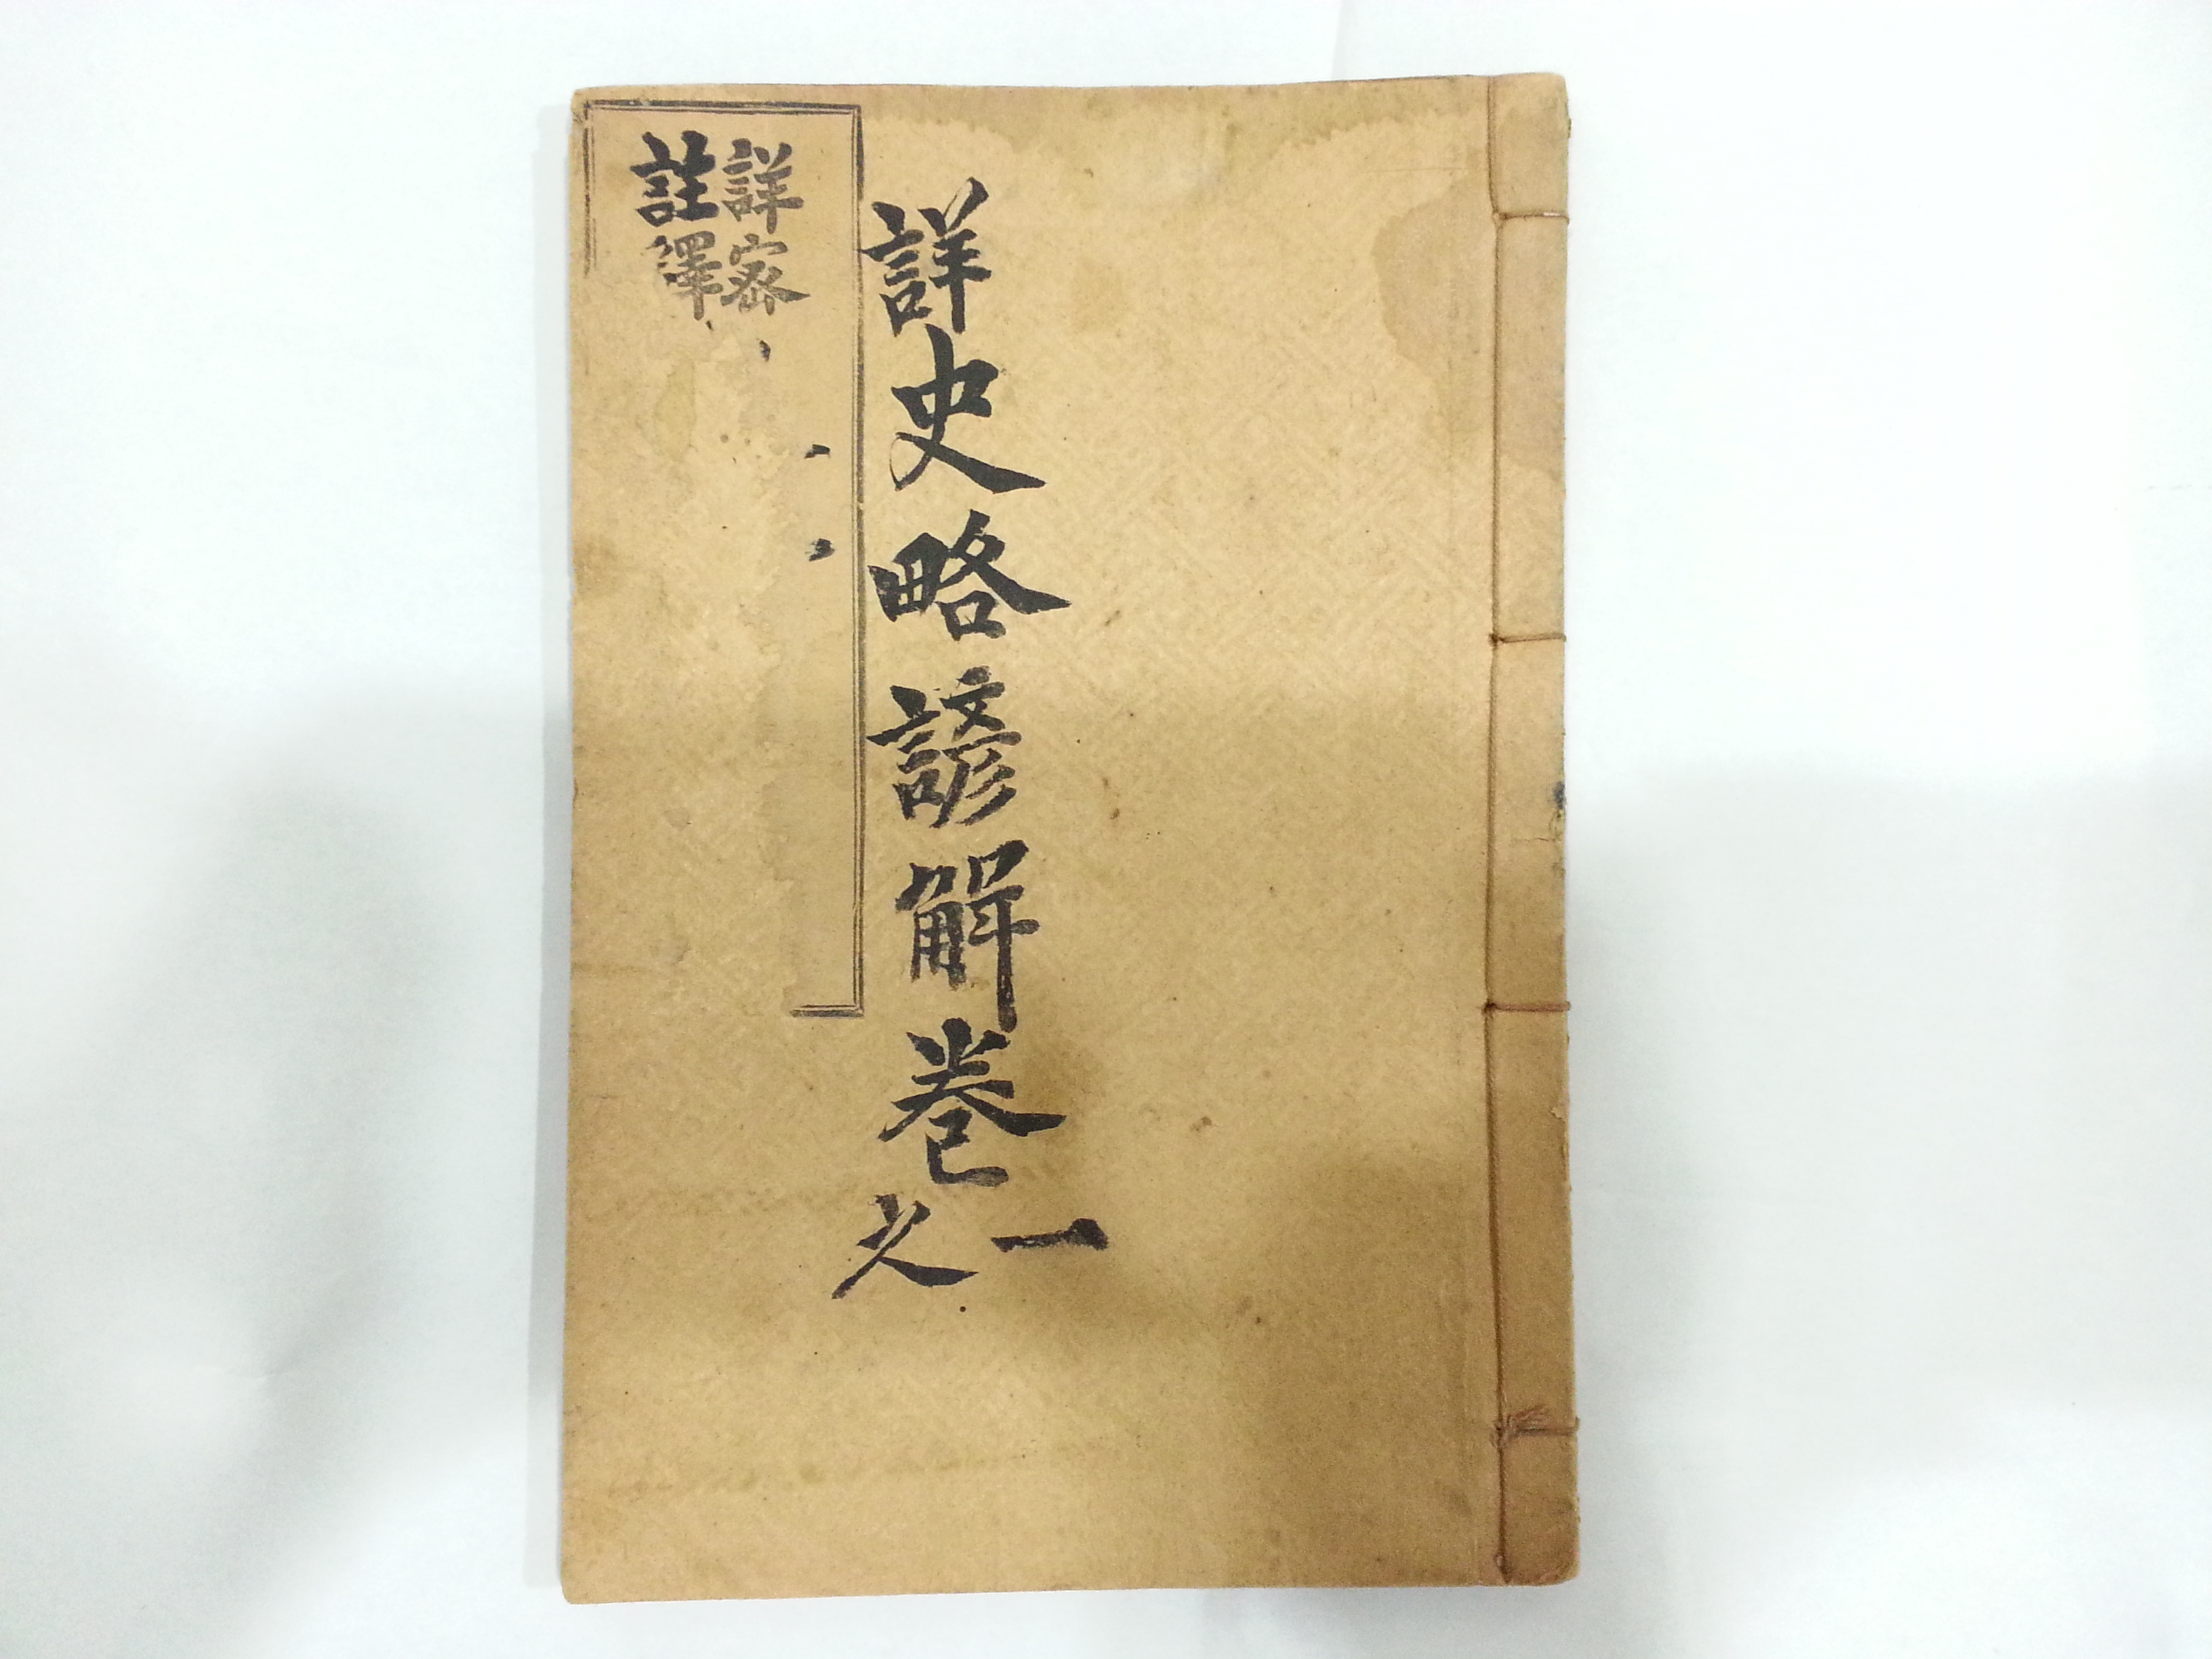 詳史略諺解卷之一
詳密
註釋